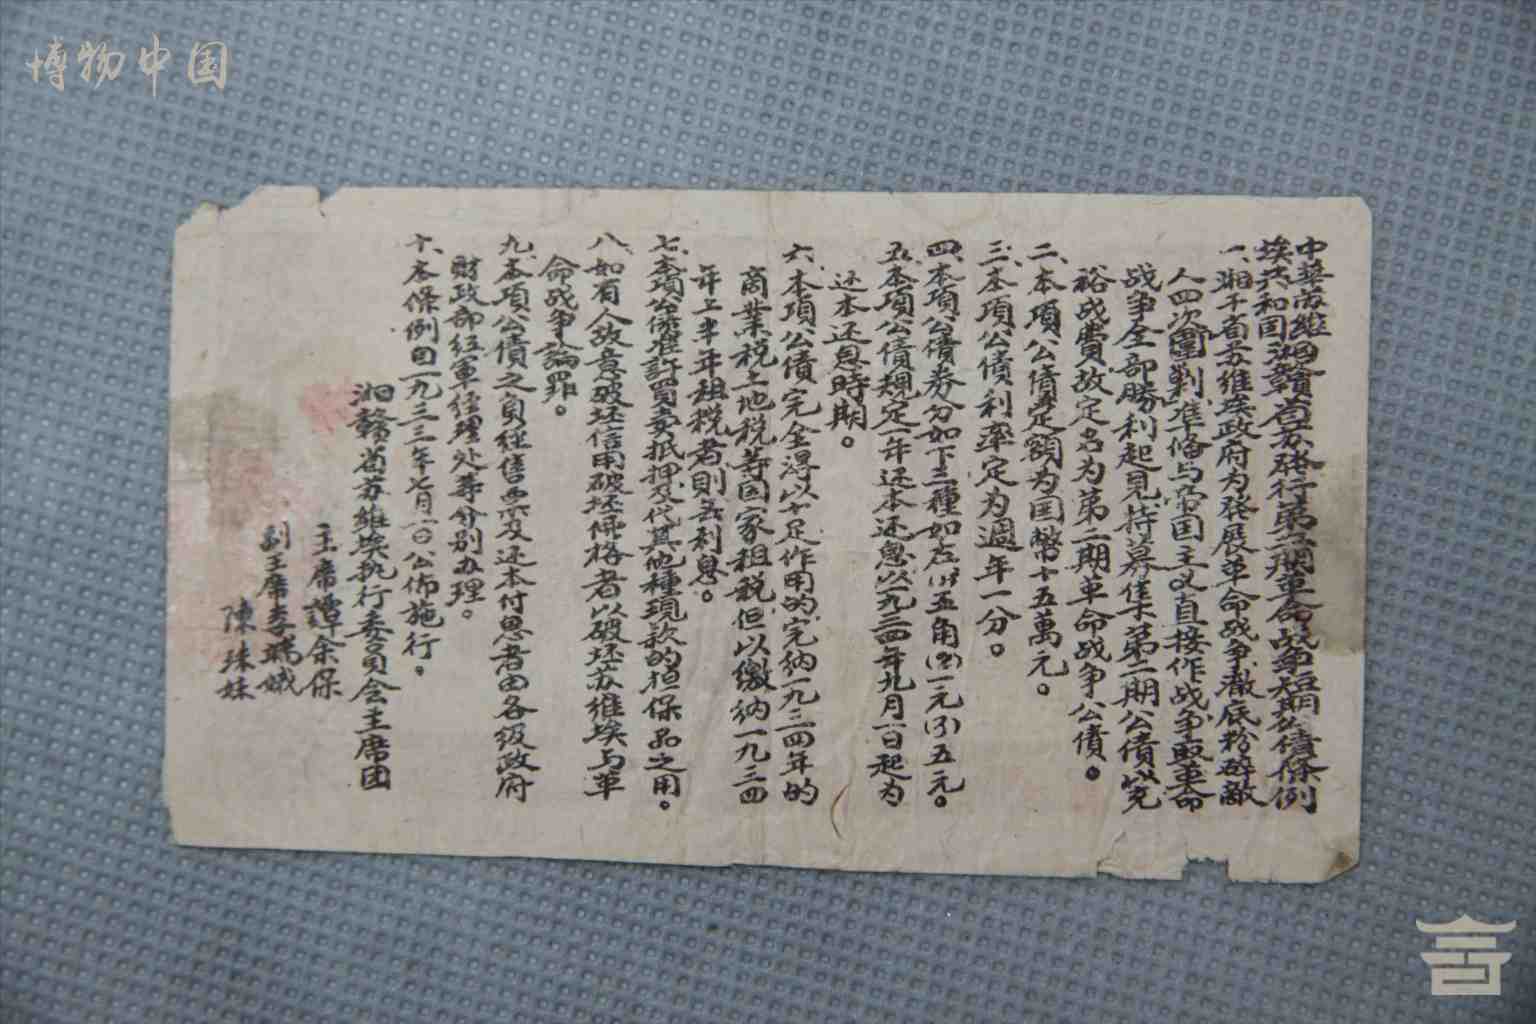 博物中国
中華苏維
埃共和国湘贛省苏發行第二期革命战争短期公債條例
一、湘干省苏维埃政府为發展革命战争澈底粉碎敵
人四次圍剿準俻与帝国主义直接作战争取革命
战争全部勝利起見特募集第二期公債以充
裕战費故定名为第二期革命战争公債。
二、本項公債定額为国幣十五萬元。
三、本項公債利率定为週年一分。
四、本項公債券分如下三種如左(1)五角(2)一元(3)五元。
五、本項公債規定一年还本还息以一九三四年九月一日起为
还本还息時期。
六、本項公債完全得以十足作用的完纳一九三四年的
商業税土地税等国家租税但以缴纳一九三四
年上半年租税者則无利息。
七、本項公債准許買卖抵押及代其他種現欵的担保品之用。
八、如有人故意破坯信用破坯價格者以破坯苏维埃与革
命战争論罪。
九、本項公債之負經售票及还本付息者由各级政府
財政部紅軍經理处等分别办理。
十、本條例自一九三三年七月一〇公佈施行。
湘贛省苏维埃执行委員会主席团
主席譚余保
副主席李瑞娥
陳珠妹